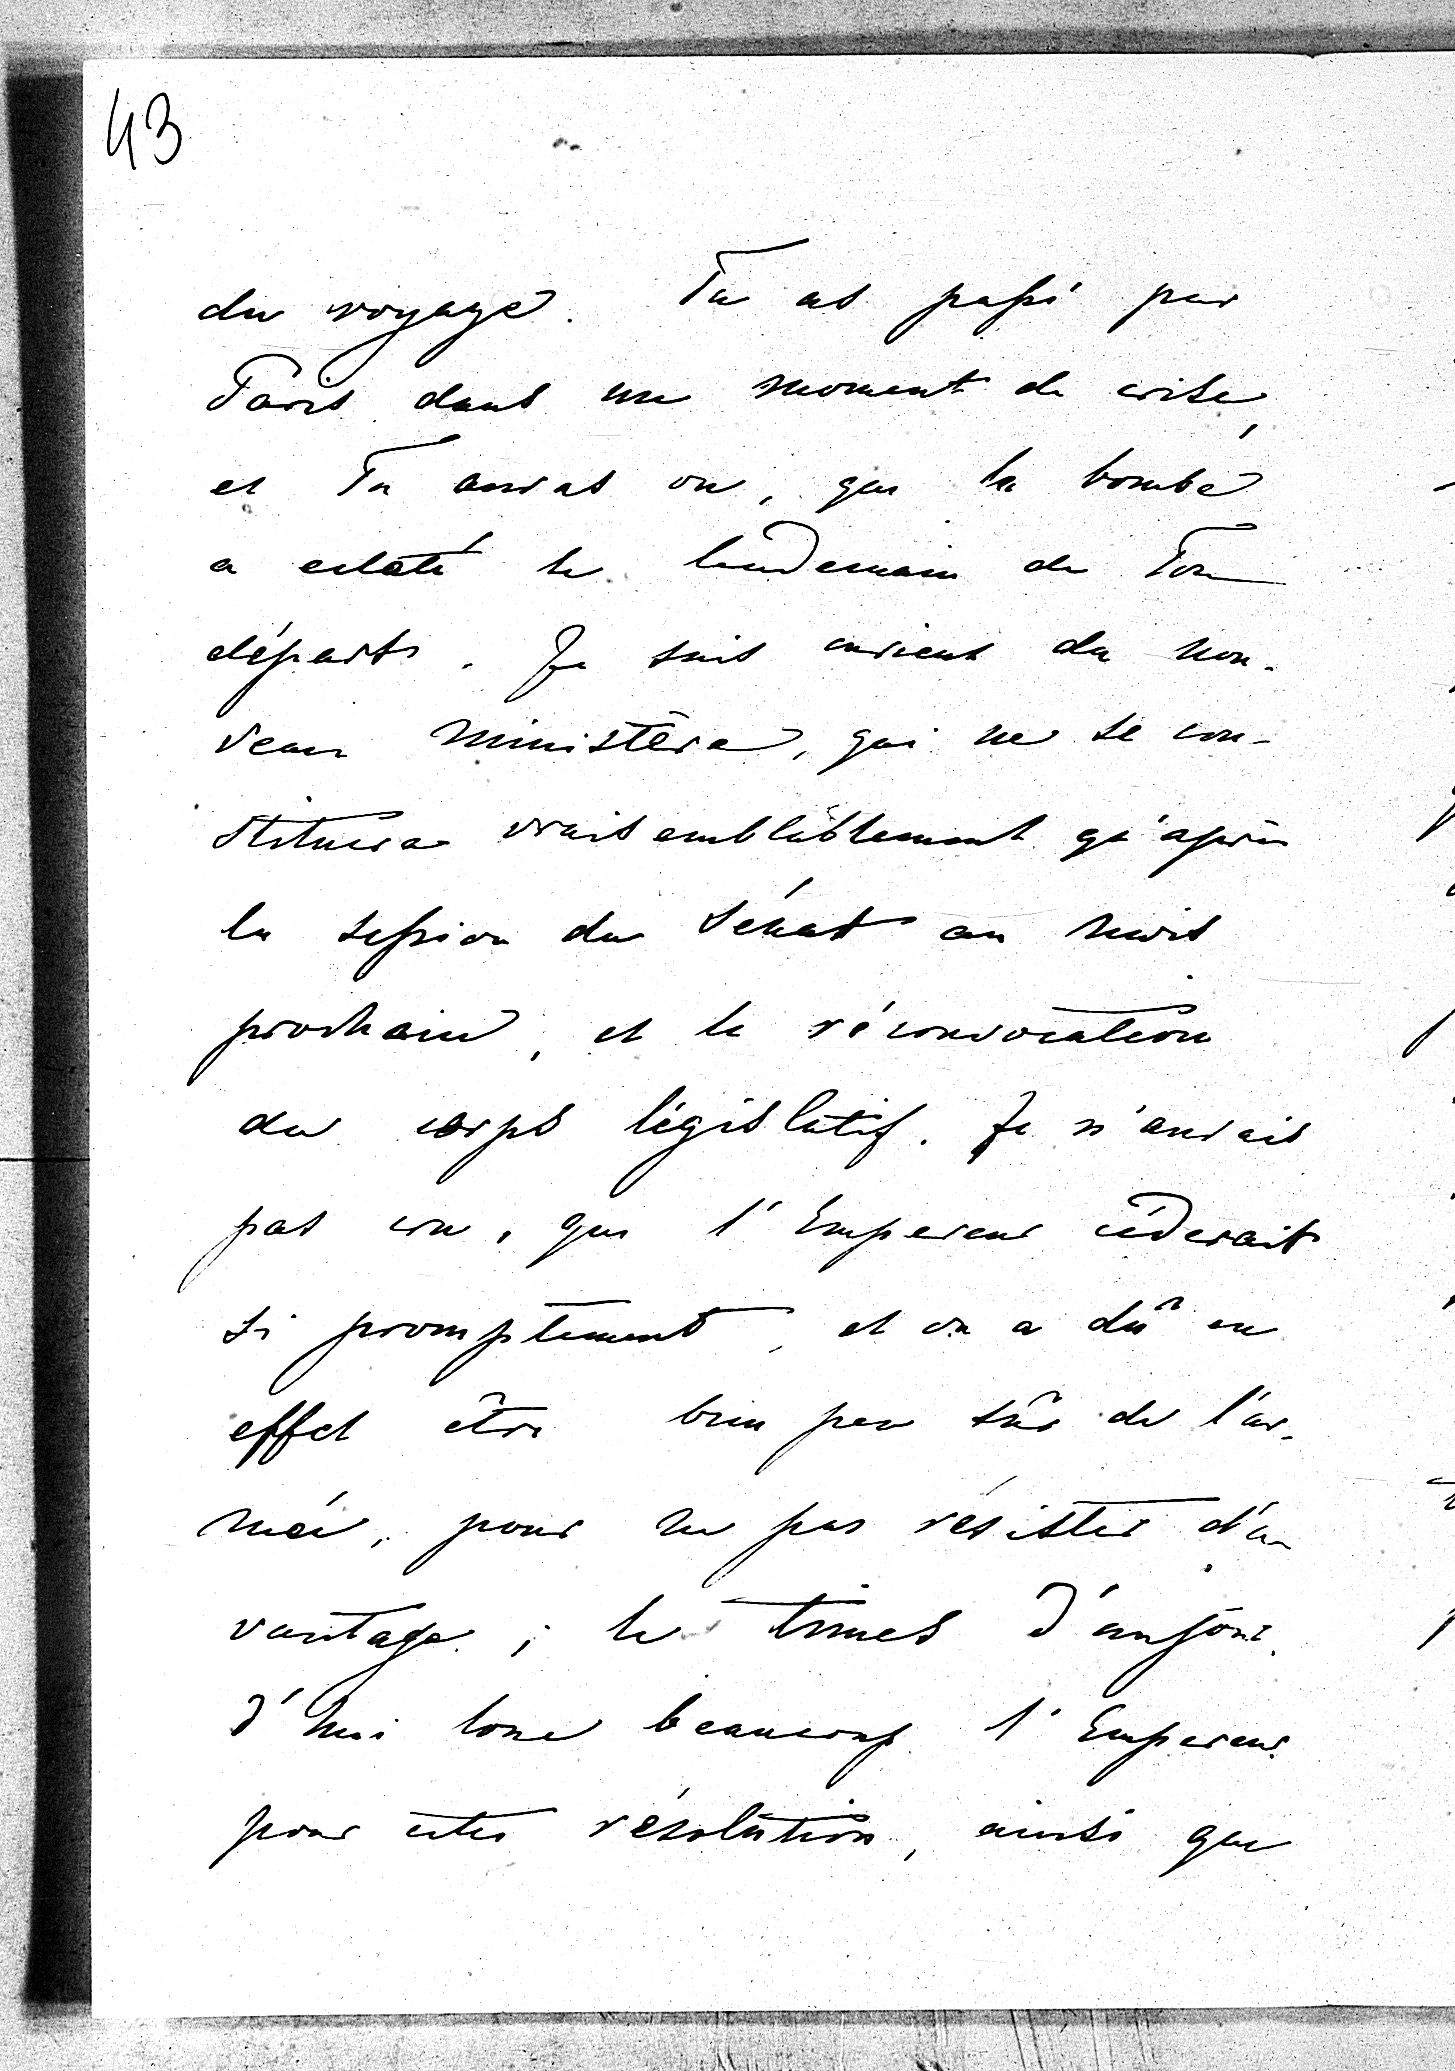 43
du voyage. Tu as passé par
Paris dans un moment de crise,
et Tu auras vu, que la bombe
a eclaté le lendemain de Ton
départ. Je suis curieux du nou-
veau ministère, qui ne se con-
stituera vraisemblablement qu'après
la session du Sénat au mois
prochain, et la réconvocation
du corps législatif. Je n'aurais
pas cru, que l'Empereur cèderait
si promptement, et on a dû en
effet être bien peu sûr de l'ar-
mée, pour ne pas résister d'a-
vantage; le Times d'aujour-
d'hui loue beaucoup l'Empereur
pour cette résolution, ainsi que